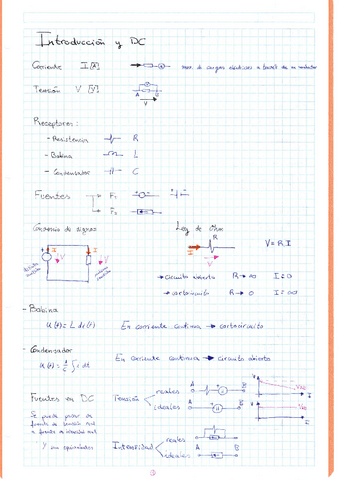 Introducción y DC
Corriente I [A] A mov. de cargas eléctricas a través de un conductor
Tensión V [V] V A B V
Receptores:
- Resistencia R
- Bobina L
- Condensador C
Fuentes F₁
F₂
Convenio de signos Ley de Ohm
R
I I V V I V = R.I
→ circuito abierto R → ∞ I = 0
→ cortocircuito R → 0 I = ∞
- Bobina
En corriente continua → cortocircuito
- Condensador
En corriente continua → circuito abierto
Fuentes en DC Tensión reales A B
ideales A B
Se puede pasar de
fuente de tensión real
a fuente de
Y son equivalentes Intensidad reales
ideales